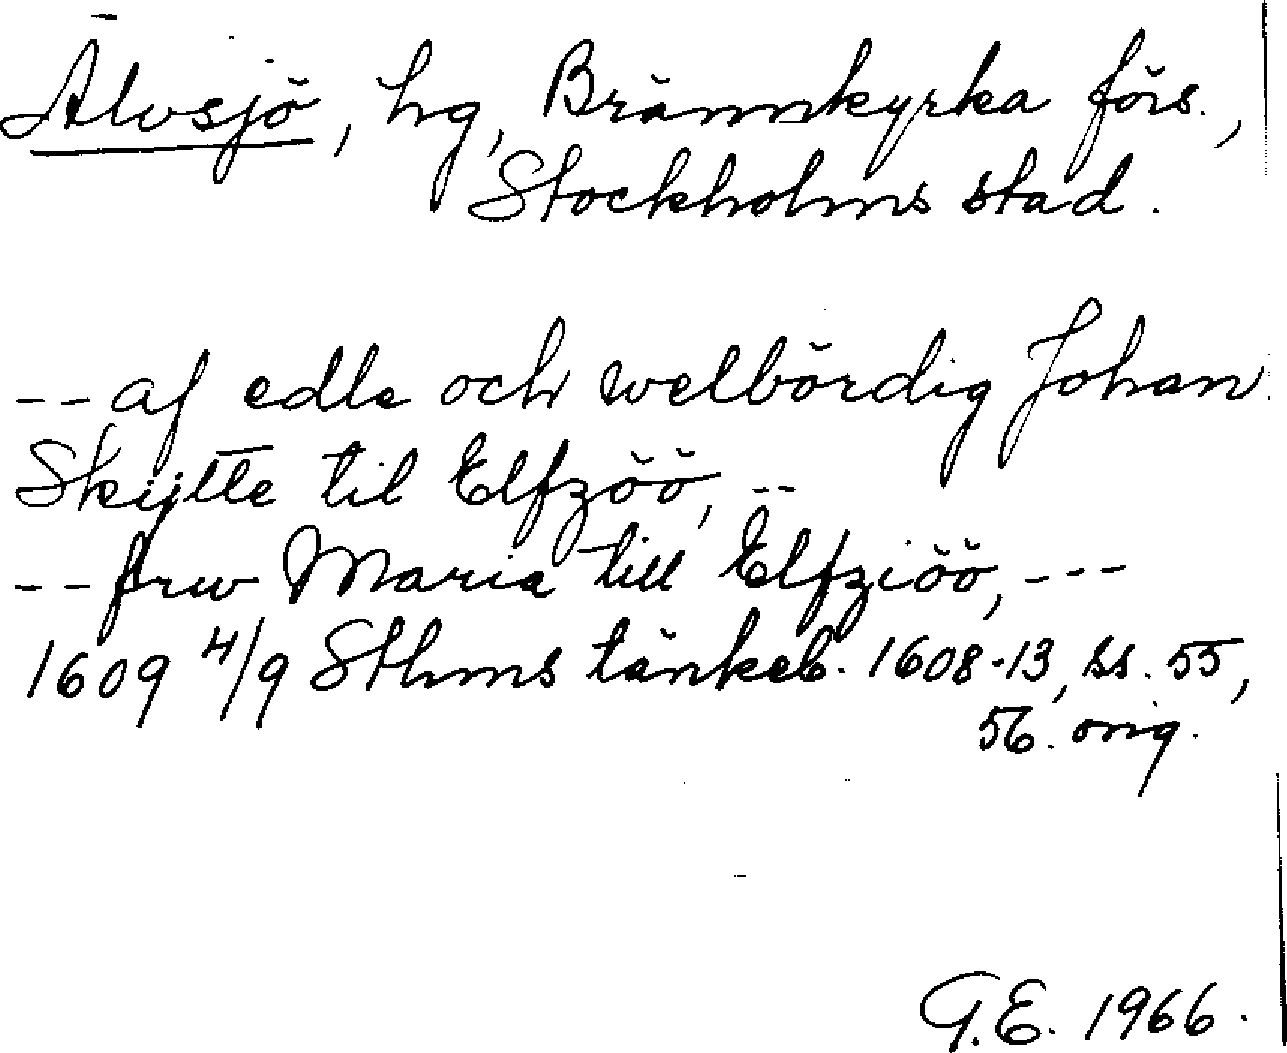 Älvsjö, hg, Brännkyrka förs.,
Stockholms stad.
-- af edle och welbördig Johan
Skÿtte til Elfzöö, --
-- frw Maria till Elfziöö, ---
1609 4/9 Sthms tänkeb. 1608-13, ss. 55,
56. orig.
G.E. 1966.